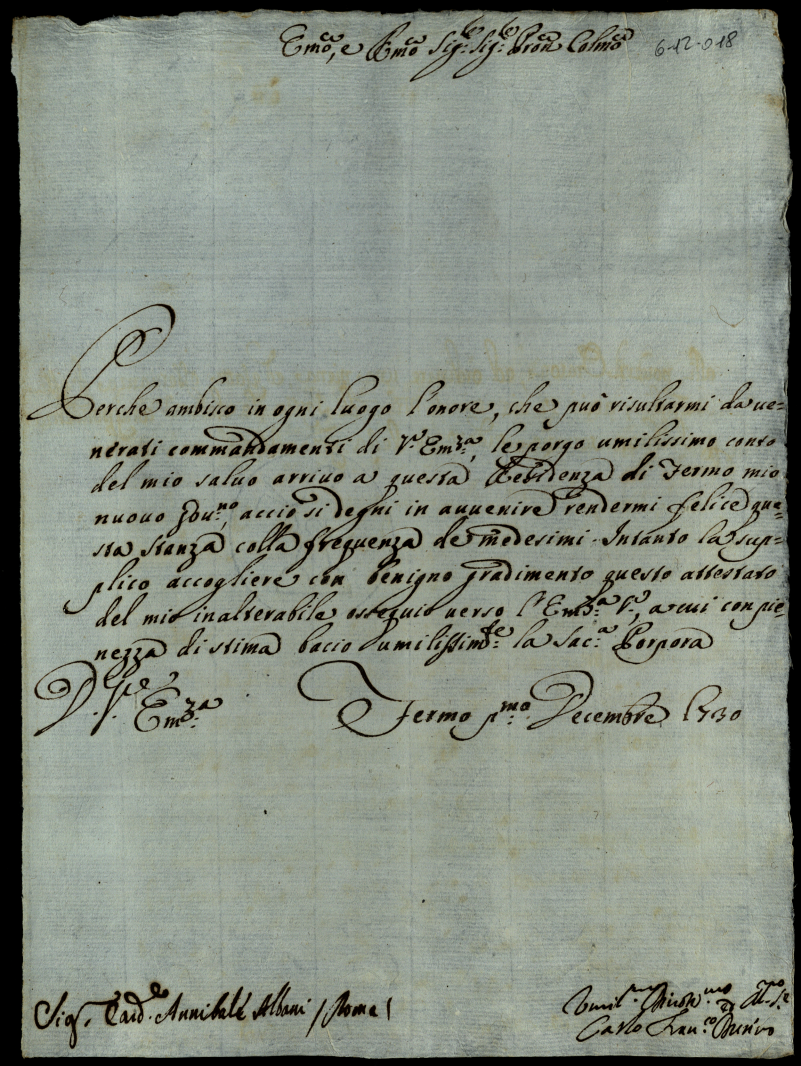 Emo, e Rmo Sig:re Sig:re Pron Colmo
6-12-018
Perche ambisco in ogni luogo l'onore, che può risultarmi da ve=
nerati commandamenti di V.ra Em:za, le porgo umilissimo conto
del mio salvo arrivo a questa Residenza di Fermo mio
nuovo Gov:no, acciò si degni in avvenire rendermi felice que=
sta stanza colla frequenza de medesimi. Intanto la sup=
plico accogliere con benigno gradimento questo attestato
del mio inalterabile ossequio verso l'Em:za V.ra, a cui con pie=
nezza di stima bacio umilissim:te la Sac:a Porpora
D. V.
Em:za
Fermo p:mo Decembre 1730
Sig. Card:le Annibale Albani / Roma /
Umil:mo
Carlo Fran:co